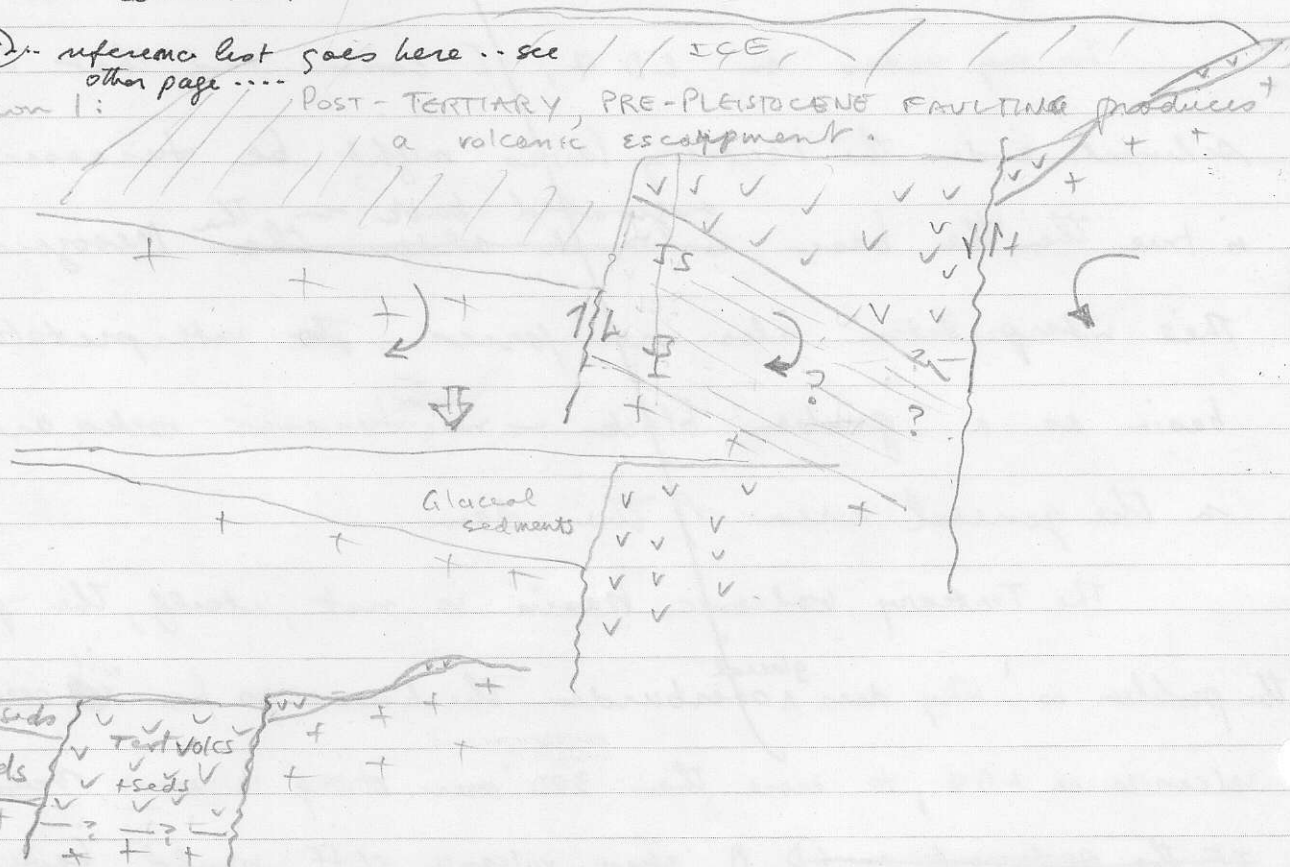 reference list goes here .. see
other page ....
ICE
on 1:
POST-TERTIARY, PRE-PLEISTOCENE FAULTING produces
a volcanic escarpment.
Js
?
?
?
Glaceal
sediments
seds
Tert Volcs
+seds
ds
? ?